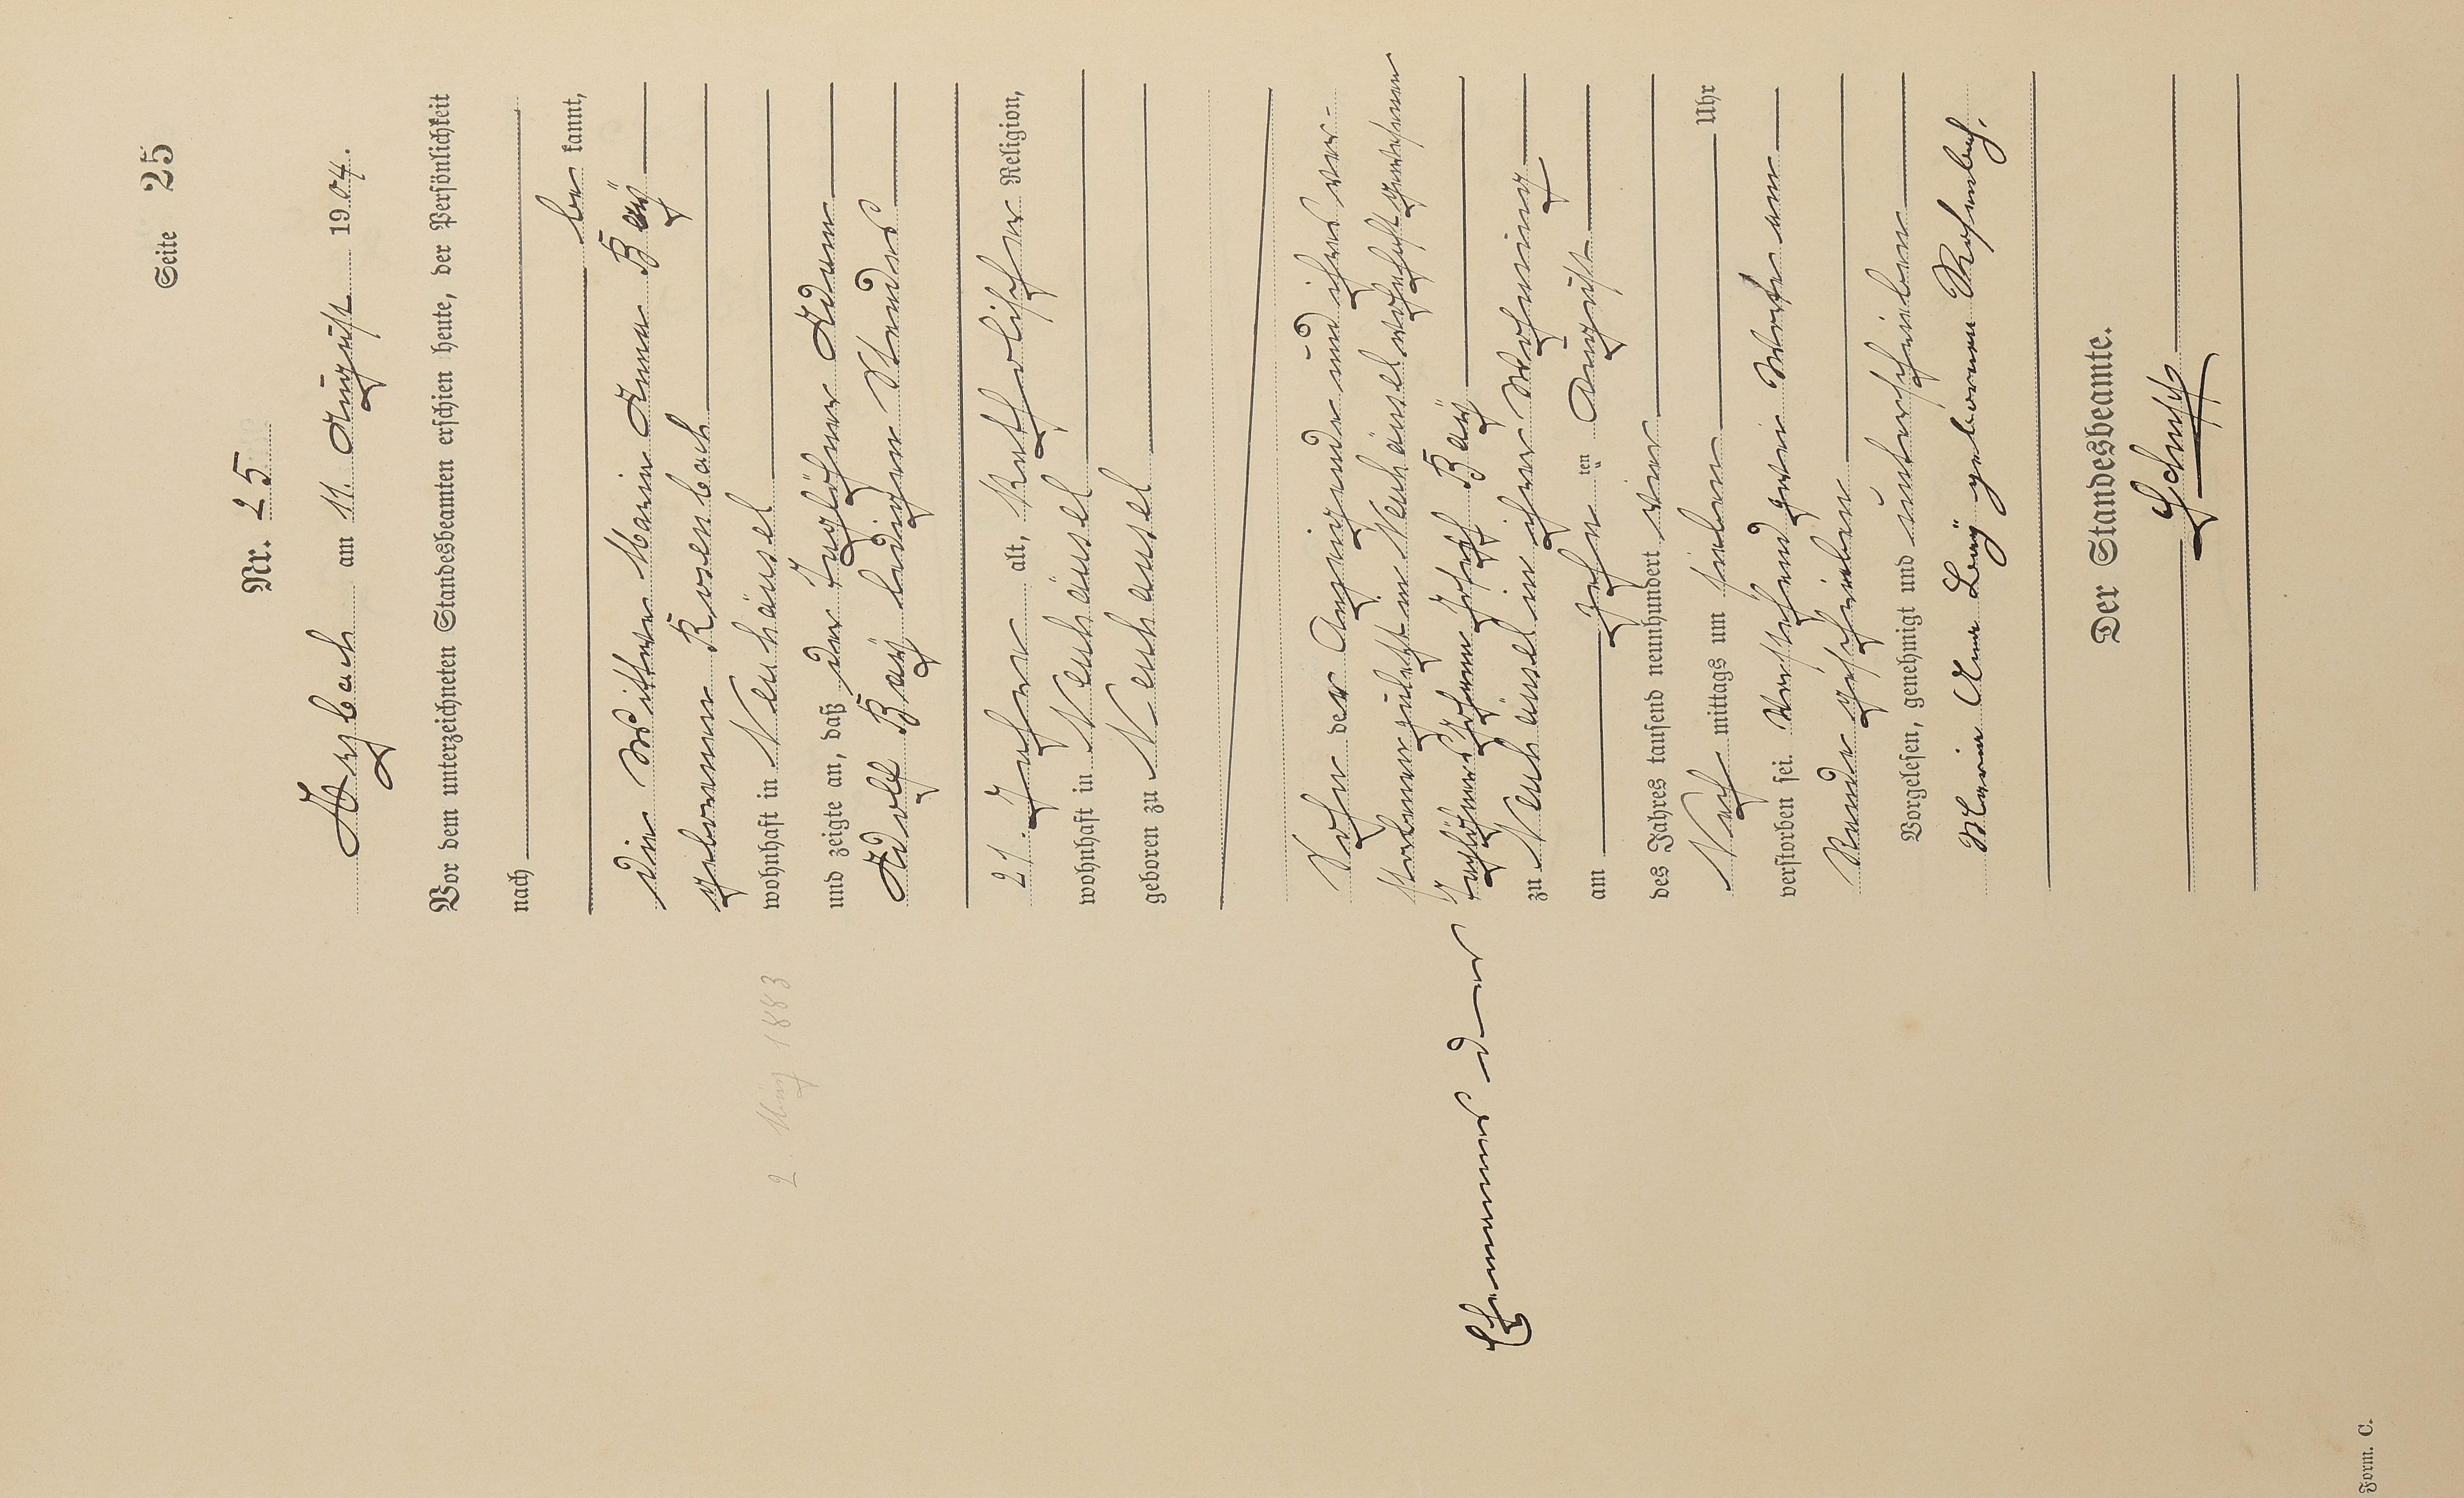 Seite 25
Nr. 25
Arzbach am 11. August 1904.
Vor dem unterzeichneten Standesbeamten erschien heute, der Persönlichkeit
nach
be kannt,
die Witwe Maria Anna Bay
geborenen Rosenbach
wohnhaft in Neuhäusel
2. März 1883
und zeigte an, daß der Taglöhner Adam
Adolf Bay ledigen Standes
21 Jahre alt, katholischer Religion,
wohnhaft in Neuhäusel
geboren zu Neuhäusel
Sohn der Anzeigende und ihres ver-
storbenen zuletzt in Neuhäusel wohnhaft gewesenen
Ehemannes des Taglöhners Johann Josef Bay
zu Neuhäusel in ihrer Wohnung
am zehn ten August
des Jahres tausend neunhundert vier
Nach mittags um sieben Uhr
verstorben sei. Vorstehend zwei Worte am
Rande geschrieben
Vorgelesen, genehmigt und unterschrieben
Maria Anna Bay geborenen Rosenbach.
Der Standesbeamte.
Form. C.